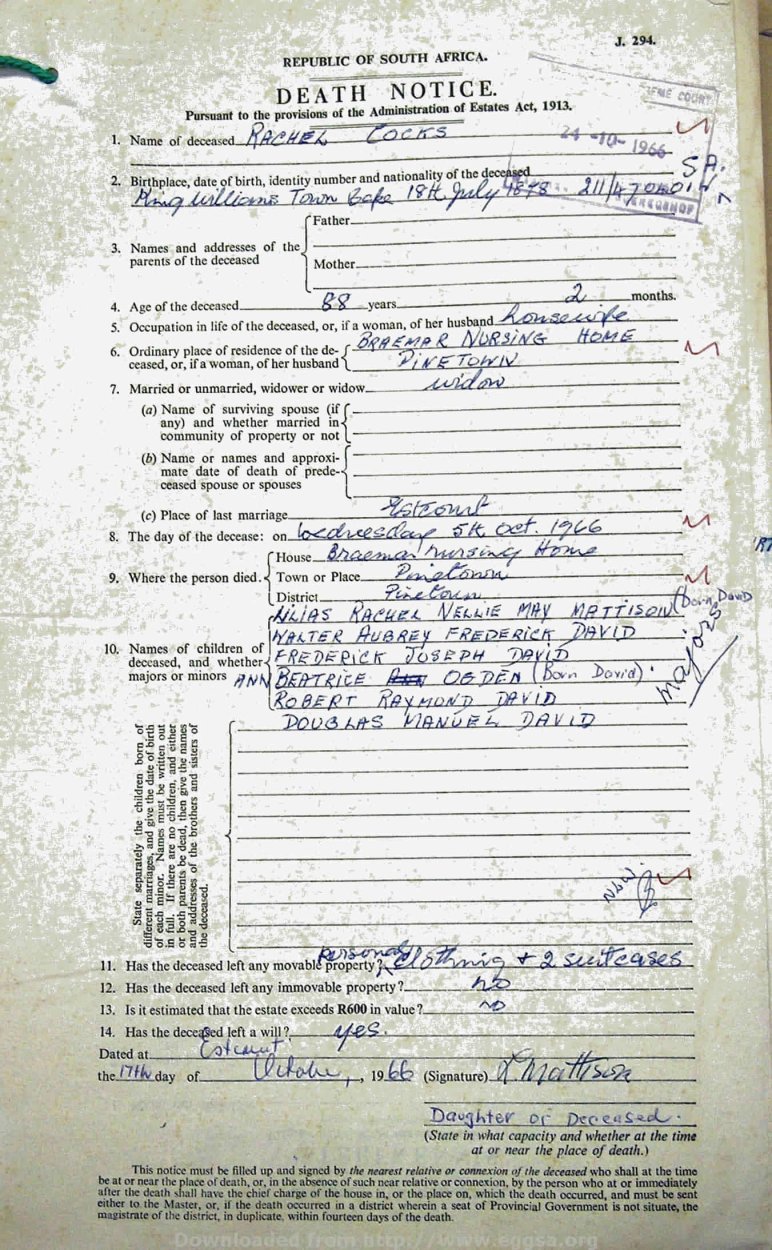 J. 294.
REPUBLIC OF SOUTH AFRICA.
DEATH NOTICE.
Pursuant to the provisions of the Administration of Estates Act, 1913.
1. Name of deceased RACHEL COCKS
24 -10- 1966
S A.
2. Birthplace, date of birth, identity number and nationality of the deceased
King Williams Town Cape 18th July 1878
3. Names and addresses of the parents of the deceased
Father
Mother
4. Age of the deceased 88 years 2 months.
5. Occupation in life of the deceased, or, if a woman, of her husband housewife
6. Ordinary place of residence of the de- BRAEMAR NURSING HOME
ceased, or, if a woman, of her husband PINETOWN
7. Married or unmarried, widower or widow widow
(a) Name of surviving spouse (if
any) and whether married in
community of property or not
(b) Name or names and approxi-
mate date of death of prede-
ceased spouse or spouses
(c) Place of last marriage Estcourt
8. The day of the decease: on Wednesday 5th Oct. 1966
House Braemar Nursing Home
9. Where the person died. Town or Place Pinetown
District Pinetown
LILIAS RACHEL NELLIE MAY MATTISON (Born David
WALTER AUBREY FREDERICK DAVID
10. Names of children of FREDERICK JOSEPH DAVID
deceased, and whether ANN BEATRICE OGDEN (Born David).
majors or minors ROBERT RAYMOND DAVID
majors
DOUGLAS MANUEL DAVID
State separately the children born of
different marriages, and give the date of birth
of each minor. Names must be written out
in full. If there are no children, and either
or both parents be dead, then give the names
and addresses of the brothers and sisters of
the deceased.
11. Has the deceased left any movable property? Personal Clothing + 2 suitcases
12. Has the deceased left any immovable property? no
13. Is it estimated that the estate exceeds R600 in value? no
14. Has the deceased left a will? yes.
Dated at Estcourt
the 17th day of October, 1966 (Signature) L Mattison
Daughter of Deceased.
(State in what capacity and whether at the time
at or near the place of death.)
This notice must be filled up and signed by the nearest relative or connexion of the deceased who shall at the time
be at or near the place of death, or, in the absence of such near relative or connexion, by the person who at or immediately
after the death shall have the chief charge of the house in, or the place on, which the death occurred, and must be sent
either to the Master, or, if the death occurred in a district wherein a seat of Provincial Government is not situate, the
magistrate of the district, in duplicate, within fourteen days of the death.
Downloaded from http://www.eggsa.org